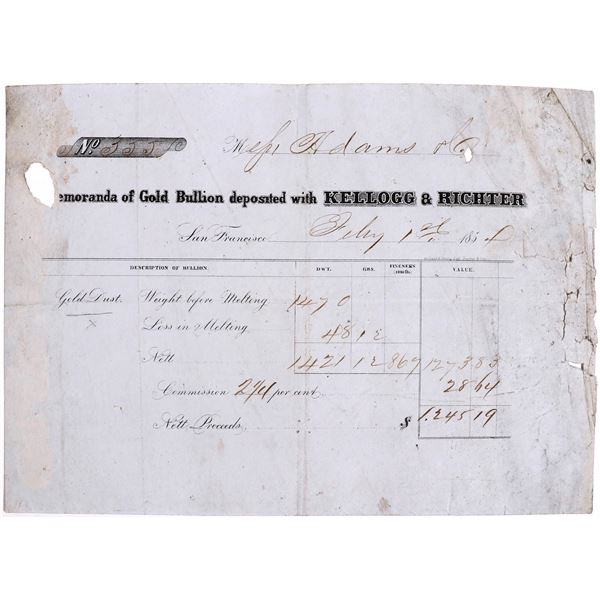 No.
Mess Adams & Co
emoranda of Gold Bullion deposited with KELLOGG & RICHTER
San Francisco Feby 1st 1854
DESCRIPTION OF BULLION. DWT. GRS. FINENESS VALUE.
Gold Dust. Weight before Melting 1470
Loss in Melting 48 12
Nett 1421 12 867 1273 83
Commission 2 1/4 per cent 28 64
Nett Proceeds $ 1.245 19